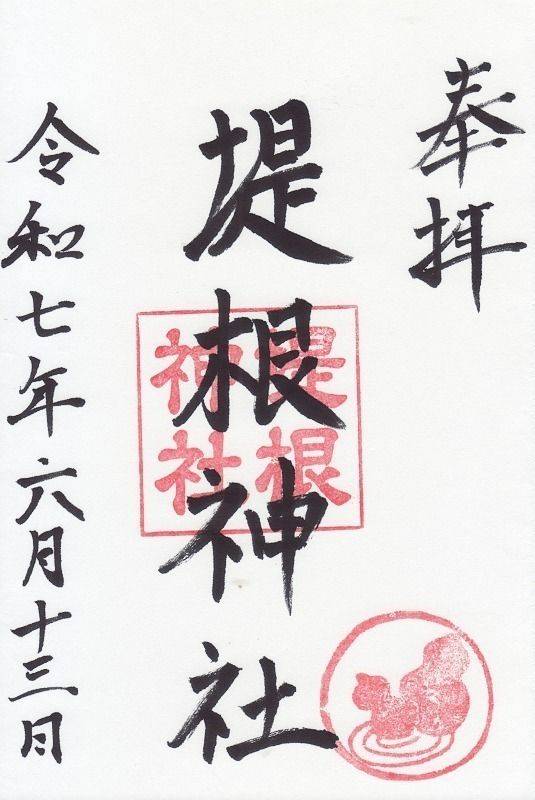 奉拝
堤根神社
堤根
神社
令和七年六月十三日